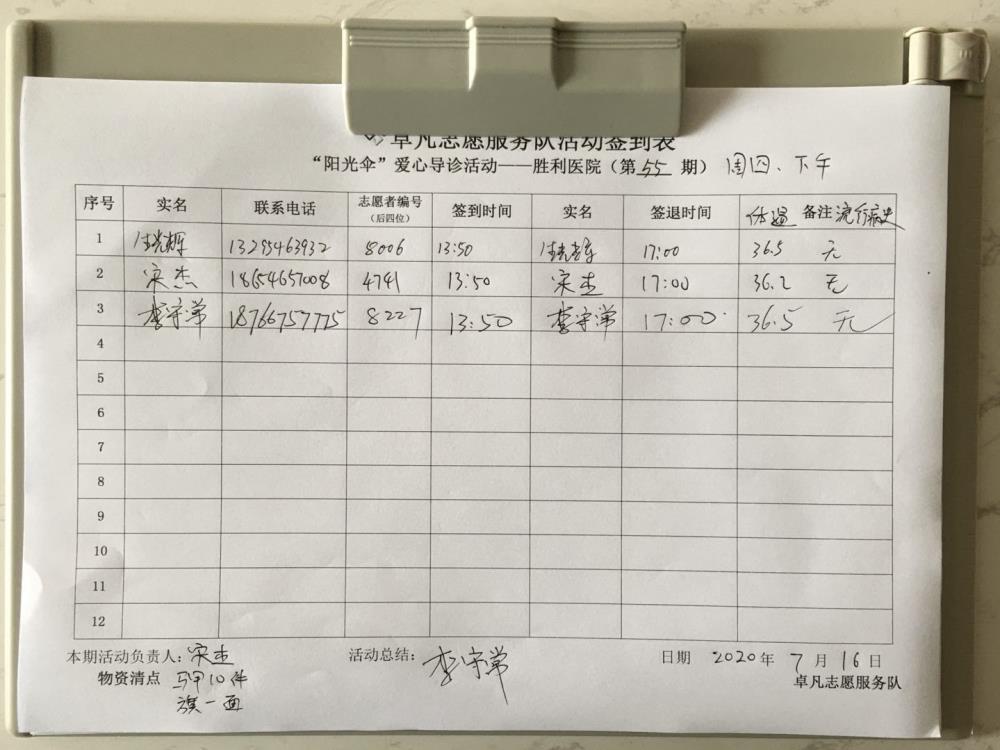 卓凡志愿服务队活动签到表
“阳光伞”爱心导诊活动——胜利医院（第 55 期） 周四、下午
序号 实名 联系电话 志愿者编号（后四位） 签到时间 实名 签退时间 体温 备注 流行病史
1 13295463932 8006 13:50 17:00 36.5 无
2 宋杰 18654657008 4741 13:50 宋杰 17:00 36.2 无
3 李守常 18766757775 8227 13:50 李守常 17:00 36.5 无
4
5
6
7
8
9
10
11
12
本期活动负责人：宋杰 活动总结：李守常 日期 2020 年 7 月 16 日
物资清点 马甲10件 卓凡志愿服务队
旗一面